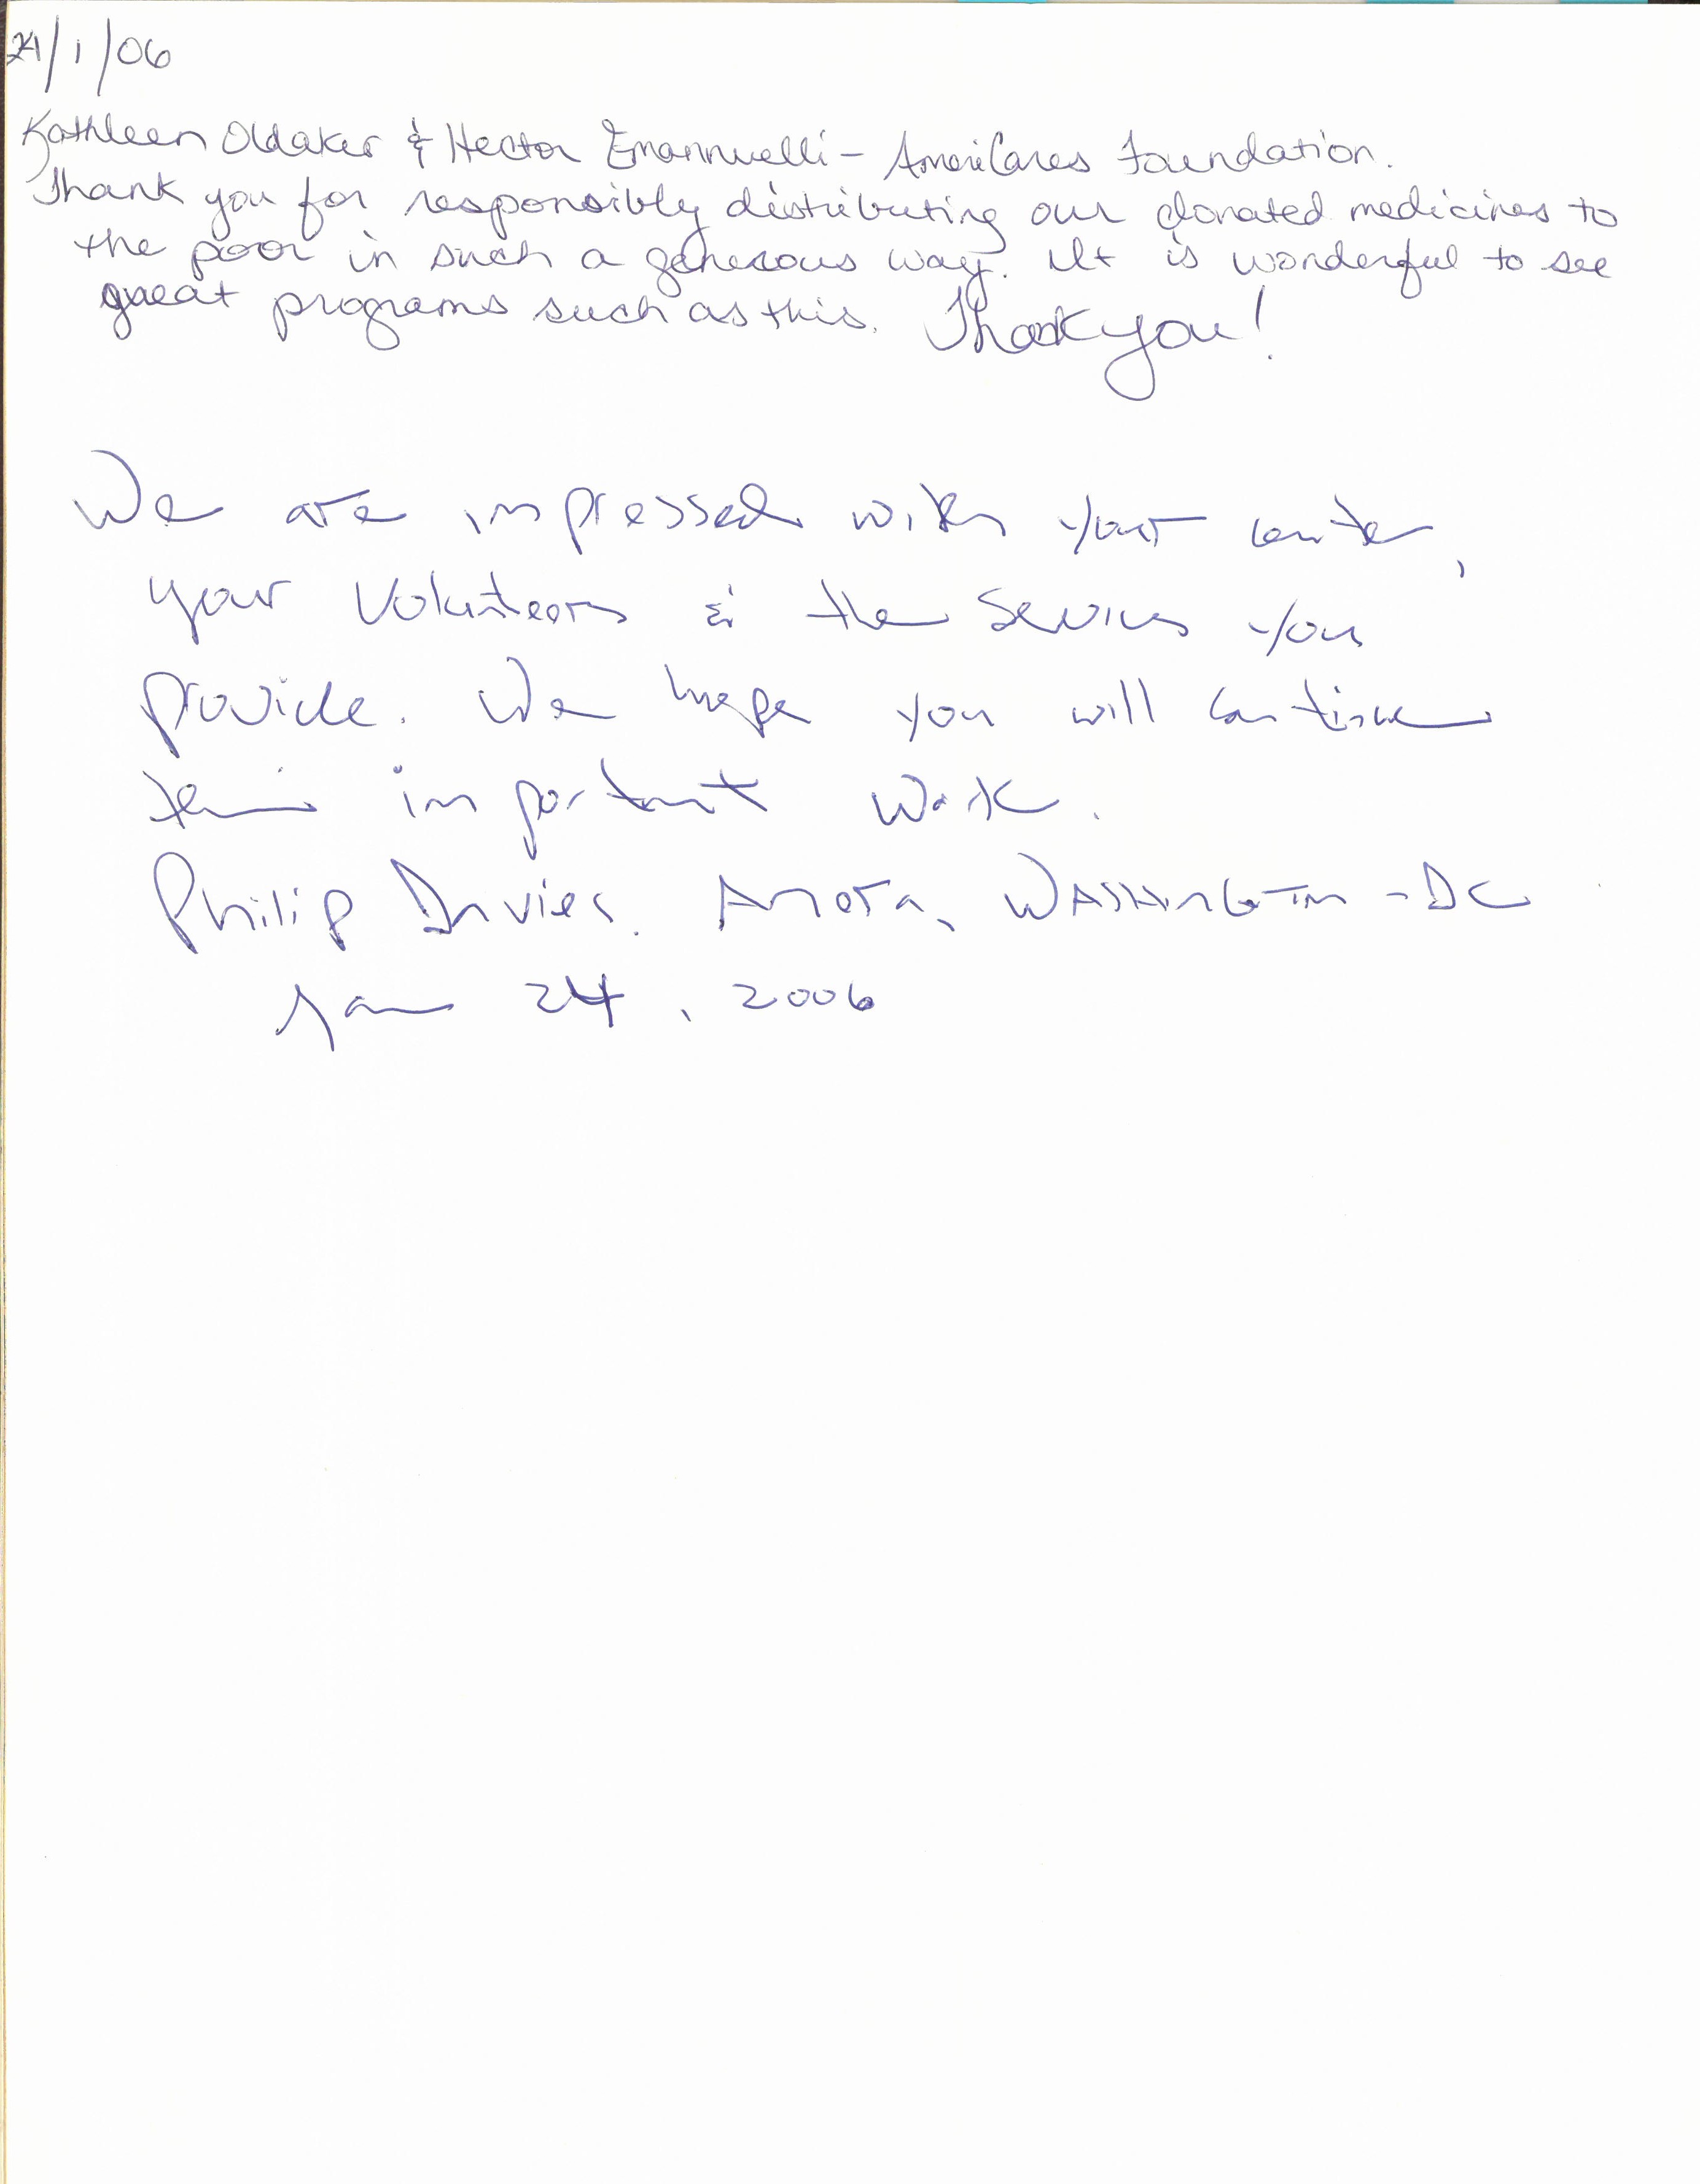 24/1/06
Kathleen Oldaker & Hector Emannuelli - AmeriCares Foundation.
Thank you for responsibly distributing our donated medicines to
the poor in such a generous way. It is wonderful to see
great programs such as this. Thank you!
We are impressed with your center,
your volunteers & the services you
provide. We hope you will continue
this important work.
Philip Davies. Washington - DC
Jan 24, 2006